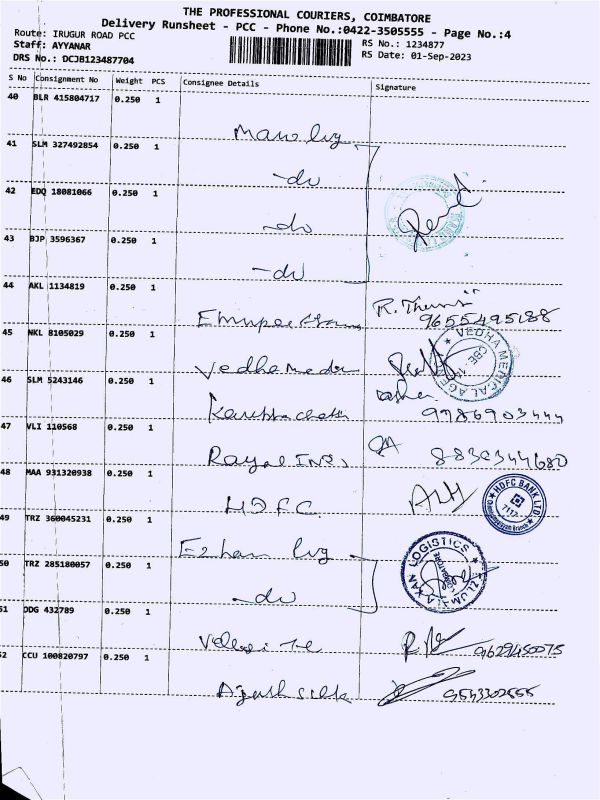 THE PROFESSIONAL COURIERS, COIMBATORE
Delivery Runsheet - PCC - Phone No.:0422-3505555 - Page No.:4
Route: IRUGUR ROAD PCC
Staff: AYYANAR
DRS No.: DCJB123487704
RS No.: 1234877
RS Date: 01-Sep-2023
S No Consignment No Weight PCS Consignee Details Signature
40 BLR 415804717 0.250 1
41 SLM 327492854 0.250 1
-do
42 EDQ 18081066 0.250 1
-do
43 BJP 3596367 0.250 1
-do
44 AKL 1134819 0.250 1
9655495188
45 NKL 8105029 0.250 1
Vedha
VEDHA MEDICAL AGE
CBE
46 SLM 5243146 0.250 1
9786903444
47 VLI 110568 0.250 1
Royal
8830344680
48 MAA 931320938 0.250 1
HDFC
HDFC BANK LTD
49 TRZ 360045231 0.250 1
LOGISTICS
COIMBATORE
50 TRZ 285180057 0.250 1
-do
51 DDG 432789 0.250 1
9629450075
52 CCU 100820797 0.250 1
9543302555